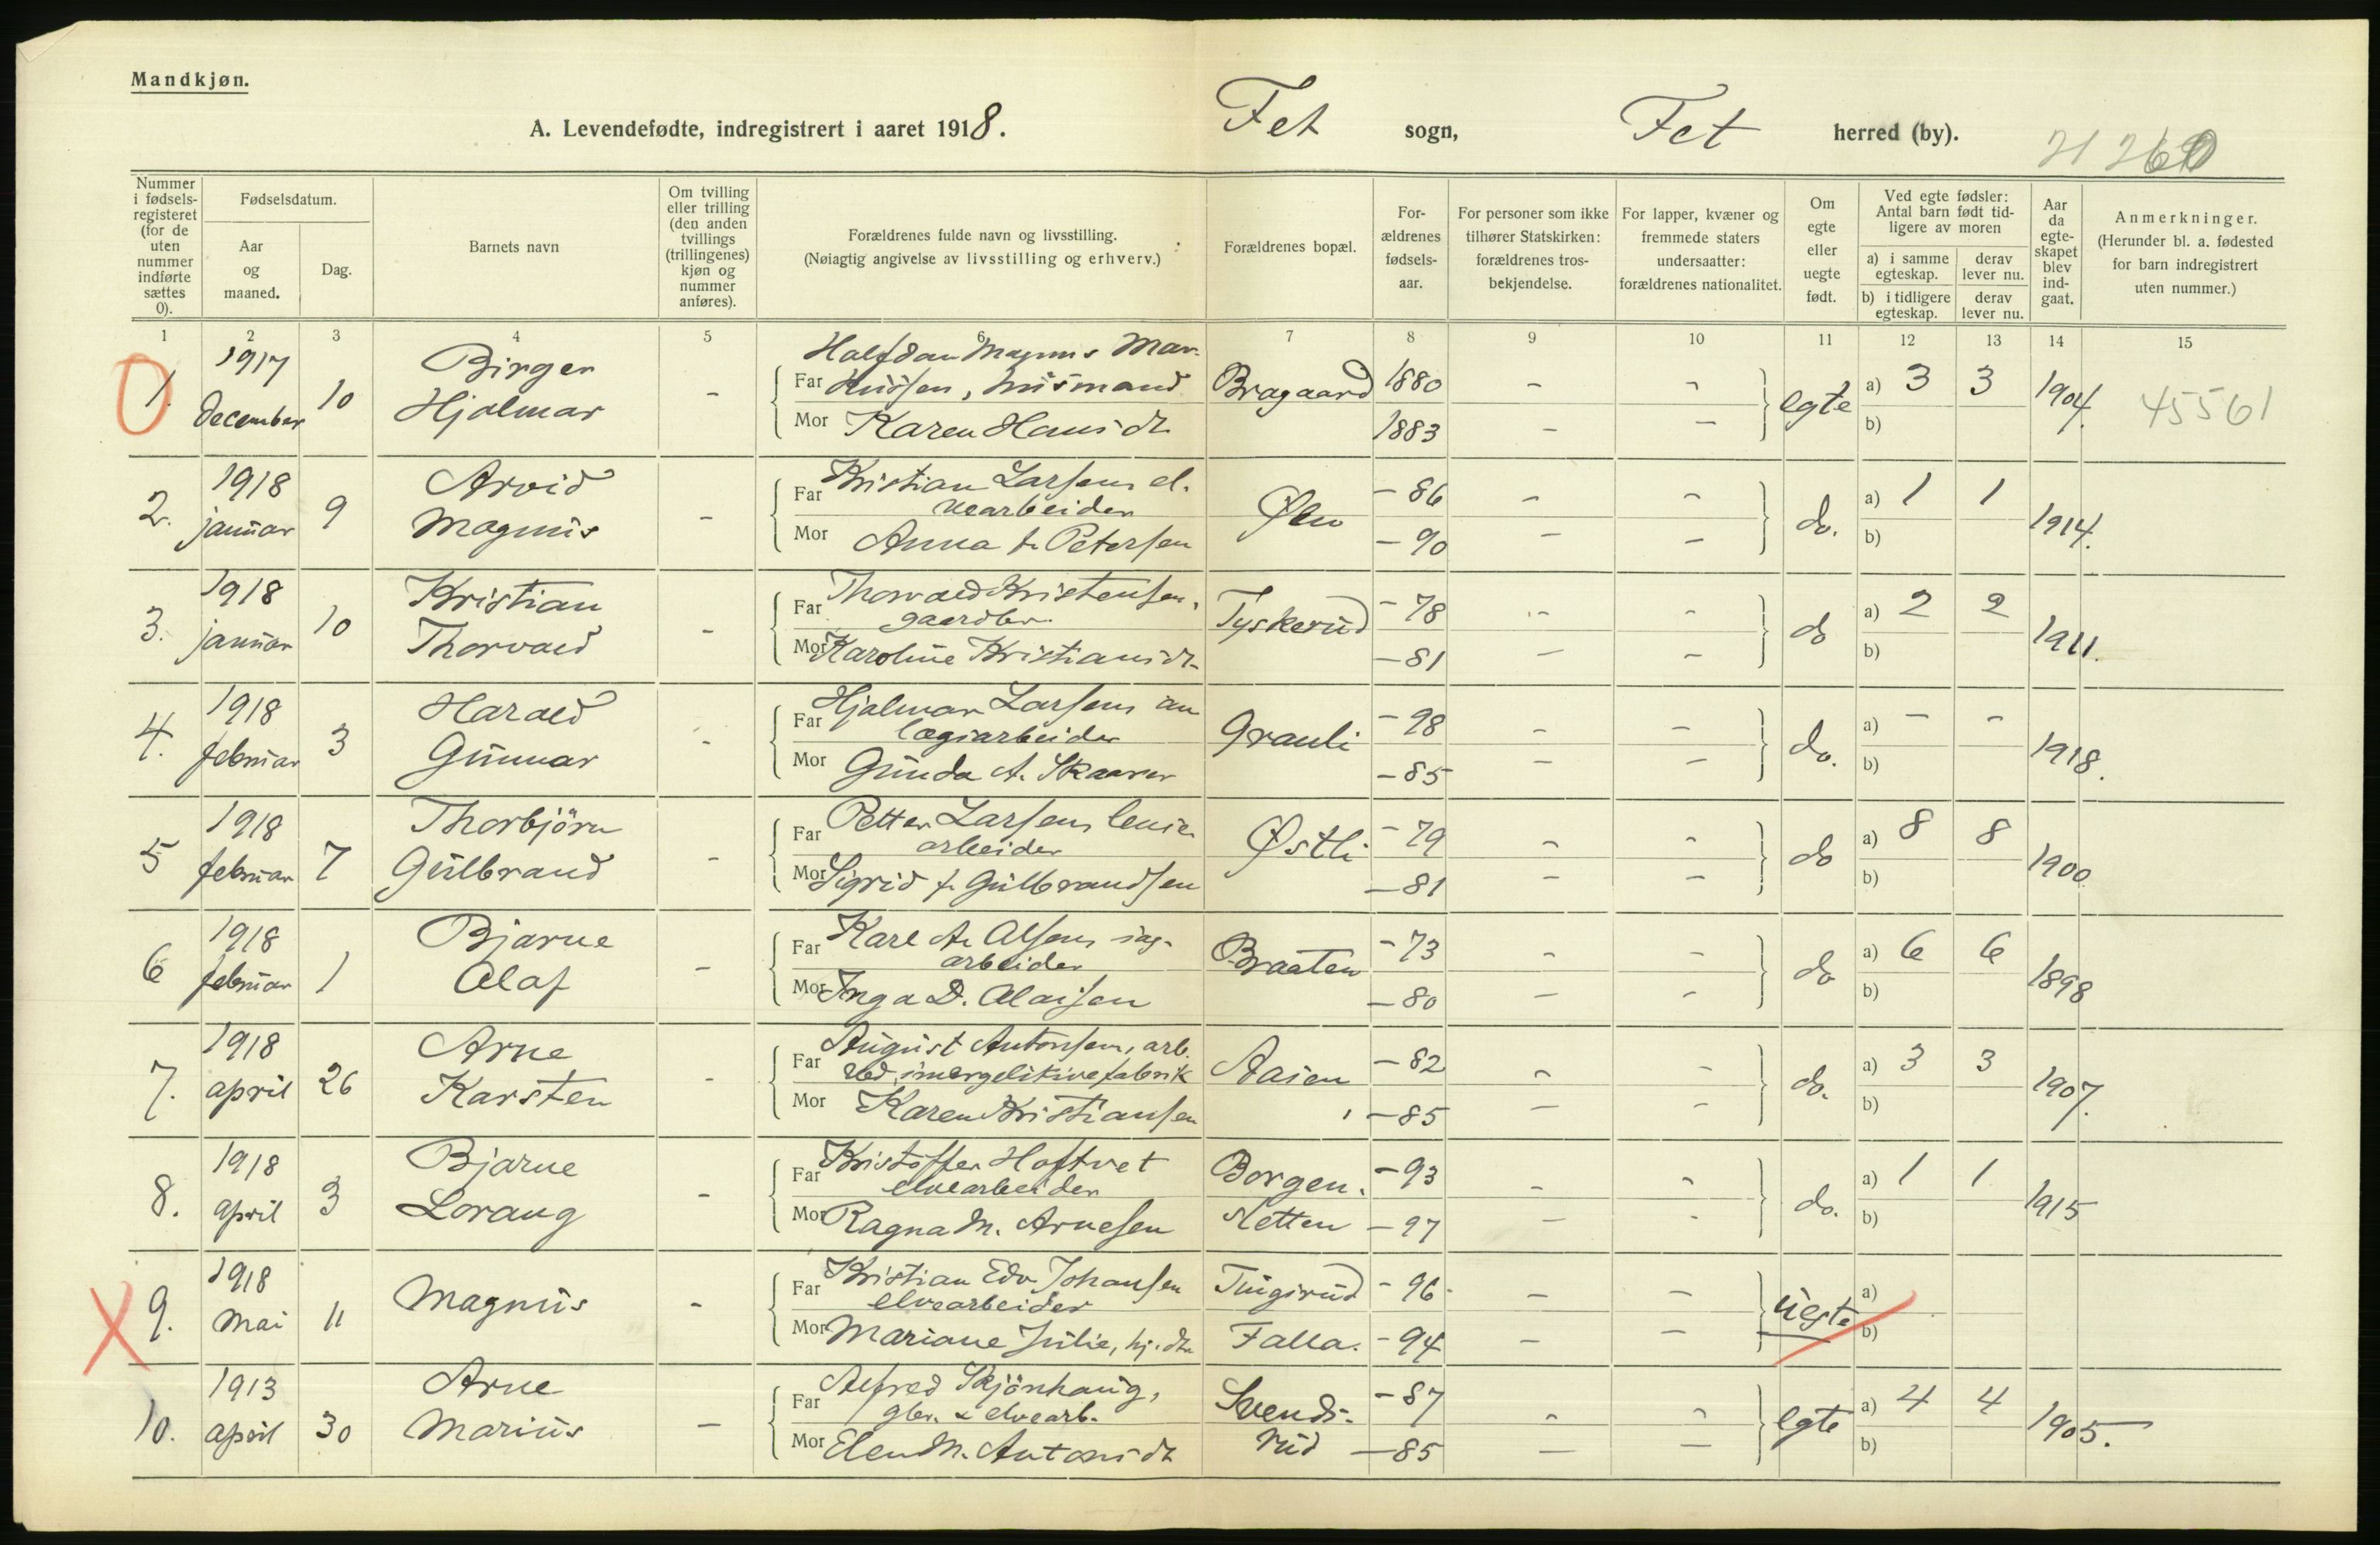 Mandkjøn.
A. Levendefødte, indregistrert i aaret 1918. Fet sogn, Fet herred (by).
21260
Nummer i fødselsregisteret (for de uten nummer indførte sættes 0).
Fødselsdatum.
Aar og maaned.
Dag.
Barnets navn
Om tvilling eller trilling (den anden tvillings (trillingenes) kjøn og nummer anføres).
Forældrenes fulde navn og livsstilling.
(Nøiagtig angivelse av livsstilling og erhverv.)
Forældrenes bopæl.
Forældrenes fødselsaar.
For personer som ikke tilhører Statskirken: forældrenes trosbekjendelse.
For lapper, kvæner og fremmede staters undersaatter: forældrenes nationalitet.
Om egte eller uegte født.
Ved egte fødsler: Antal barn født tidligere av moren
a) i samme egteskap. derav lever nu.
b) i tidligere egteskap. derav lever nu.
Aar da egteskapet blev indgaat.
Anmerkninger.
(Herunder bl. a. fødested for barn indregistrert uten nummer.)
1 2 3 4 5 6 7 8 9 10 11 12 13 14 15
1. 1917 december 10 Birger Hjalmar -
Far Halfdan Magnus Markussen, husmand Bragaard 1880 - -
Mor Karen Hansdt. 1883 - -
egte a) 3 3 b) 1904. 45561
2. 1918 januar 9 Arvid Magnus -
Far Kristian Larsen, elvearbeider - 86 - -
Mor Anna f. Petersen - 90 - -
do. a) 1 1 b) 1914.
3. 1918 januar 10 Kristian Thorvald -
Far Thorvald Kristensen, gaardbr. Tyskerud - 78 - -
Mor Karoline Kristiansdt. - 81 - -
do a) 2 2 b) 1911.
4. 1918 februar 3 Harald Gunnar -
Far Hjalmar Larsen, anlægsarbeider Grauli - 98 - -
Mor Gunda A. Skaarer - 85 - -
do. a) - - b) 1918.
5 1918 februar 7 Thorbjörn Gulbrand -
Far Petter Larsen, lense arbeider Østli - 79 - -
Mor Sigrid f. Gulbrandsen - 81 - -
do a) 8 8 b) 1900
6 1918 februar 1 Bjarne Olaf -
Far Karl A. Olsen, sagarbeider Braaten - 73 - -
Mor Inga D. Olaisen - 80 - -
do a) 6 6 b) 1898
7. 1918 april 26 Arne Karsten -
Far August Antonsen, arb. ved smergelskivefabrik Aasen - 82 - -
Mor Karen Kristiansen - 85 - -
do. a) 3 3 b) 1907.
8. 1918 april 3 Bjarne Lorang -
Far Kristoffer Hoftvet elvearbeider Borgen. - 93 - -
Mor Ragna M. Arnesen sletten - 97 - -
do. a) 1 1 b) 1915
9. 1918 Mai 11 Magnus -
Far Kristian Edv. Johansen elvearbeider - 96 - -
Mor Mariane Julie, hj. dt. Falla. - 94 - -
uegte a) b)
10. 1913 april 30 Arne Marius -
Far Alfred Skjönhaug, gbr. & elvearb. Svendsrud - 87 - -
Mor Elen M. Antonsdt - 85 - -
egte a) 4 4 b) 1905.